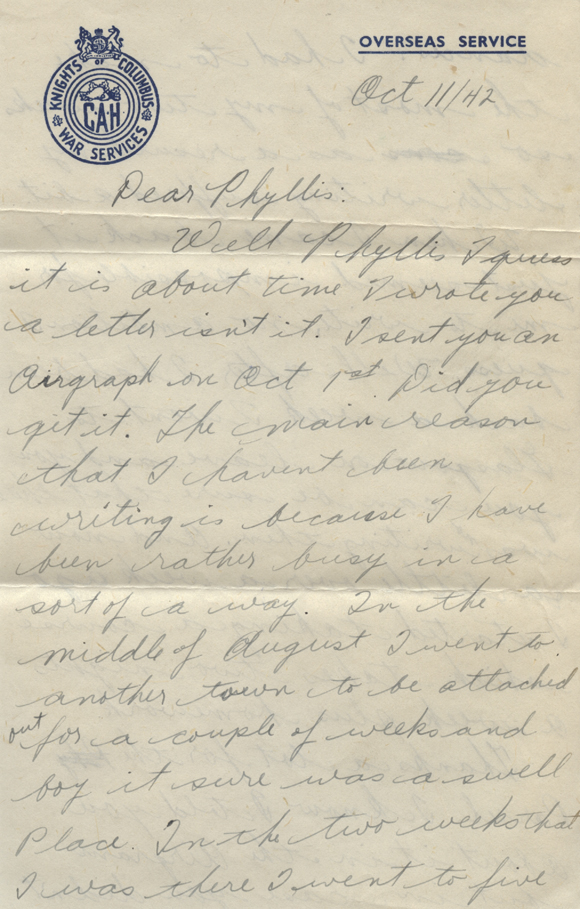 OVERSEAS SERVICE
KNIGHTS OF COLUMBUS
C·A·H
WAR SERVICES
Oct 11/42
Dear Phyllis:
Well Phyllis I guess
it is about time I wrote you
a letter isn't it. I sent you an
Airgraph on Oct 1st. Did you
get it. The main reason
that I havent been
writing is because I have
been rather busy in a
sort of a way. In the
middle of August I went to
another town to be attached
out for a couple of weeks and
boy it sure was a swell
Place. In the two weeks that
I was there I went to five